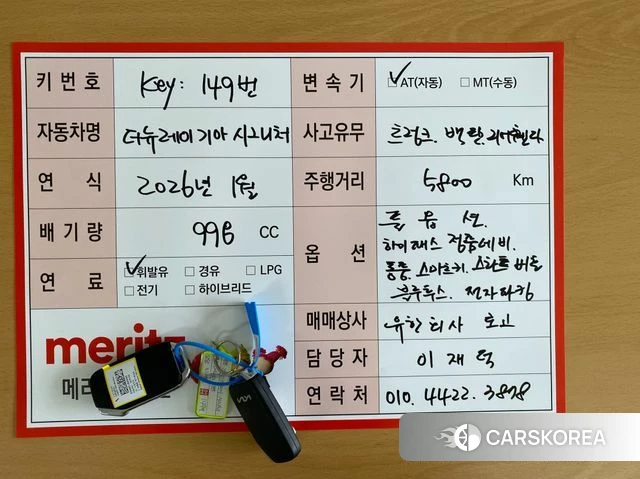 키번호 Key: 149번 변속기 ✓AT(자동) □ MT(수동)
자동차명 더뉴레이 기아 시그니처 사고유무 트렁크. 백판. 리어휀다
연식 2026년 1월 주행거리 5800 Km
배기량 998 CC 옵션 풀 옵션.
하이패스 정품네비.
연료 ✓휘발유 □ 경유 □ LPG 통풍. 스마트키. 스마트 버튼
□ 전기 □ 하이브리드 블루투스. 전자파킹
매매상사 유한회사 토고
meritz 담당자 이재덕
메리 연락처 010. 4422. 3878
KIA
CARSKOREA